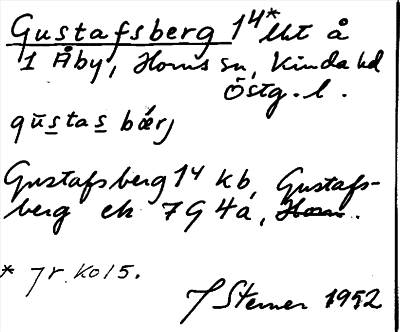 Gustafsberg 1/4* lht å
1 Åby, Horns sn, Kinda hd
Östg. l.
gustas bærj
Gustafsberg 1/4 kb, Gustafs-
berg ek 7G4a, Horn.
* jr. kol 5.
J Sterner 1952